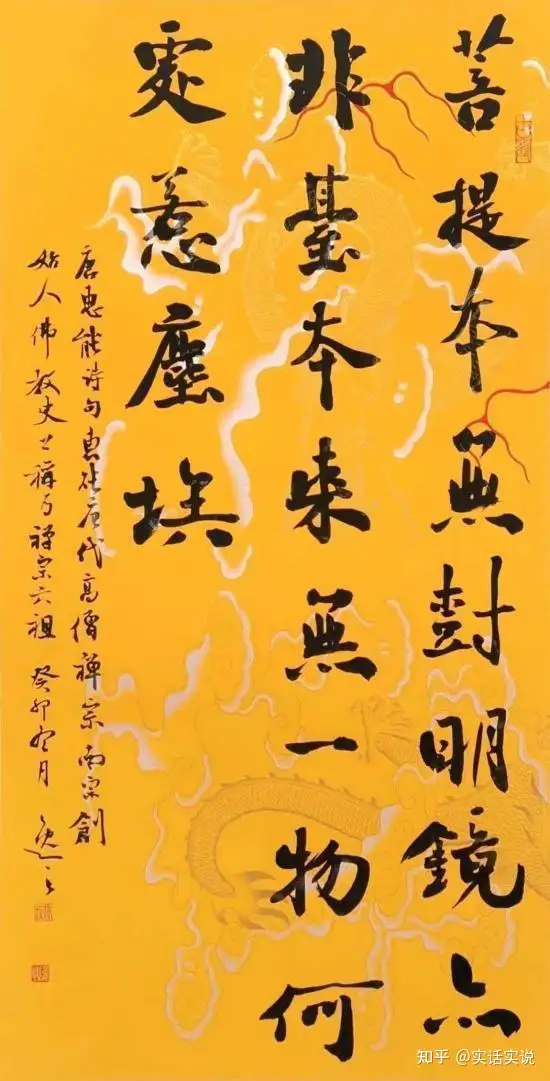 菩提本無樹明鏡亦
非臺本來無一物何
處惹塵埃
唐惠能诗句惠能唐代高僧禅宗南宗創
始人佛教史上稱为禅宗六祖 癸卯冬月 逸之
知乎 @实话实说